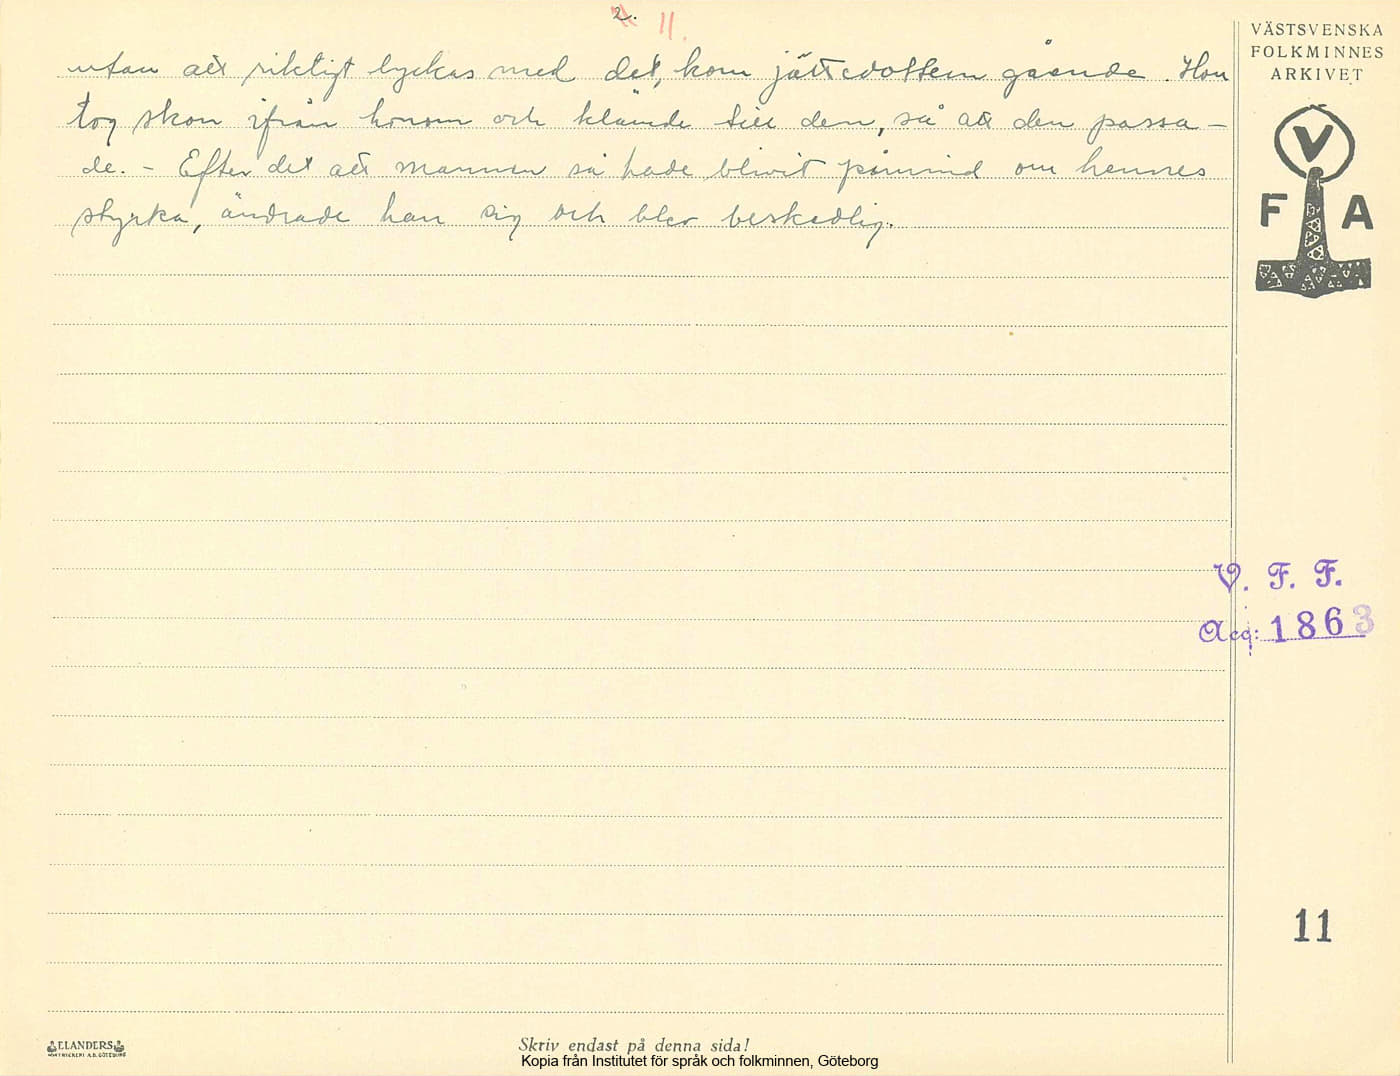 2. 11.
utan att riktigt lyckas med det, kom jättedottern gående. Hon
tog skon ifrån honom och klämde till den, så att den passa-
de. - Efter det att mannen så hade blivit påmind om hennes
styrka, ändrade han sig och blev beskedlig.
VÄSTSVENSKA
FOLKMINNES
ARKIVET
V
F A
V. F. F.
Acc: 1863
11
ELANDERS
BOKTRYCKERI A.B. GÖTEBORG
Skriv endast på denna sida!
Kopia från Institutet för språk och folkminnen, Göteborg